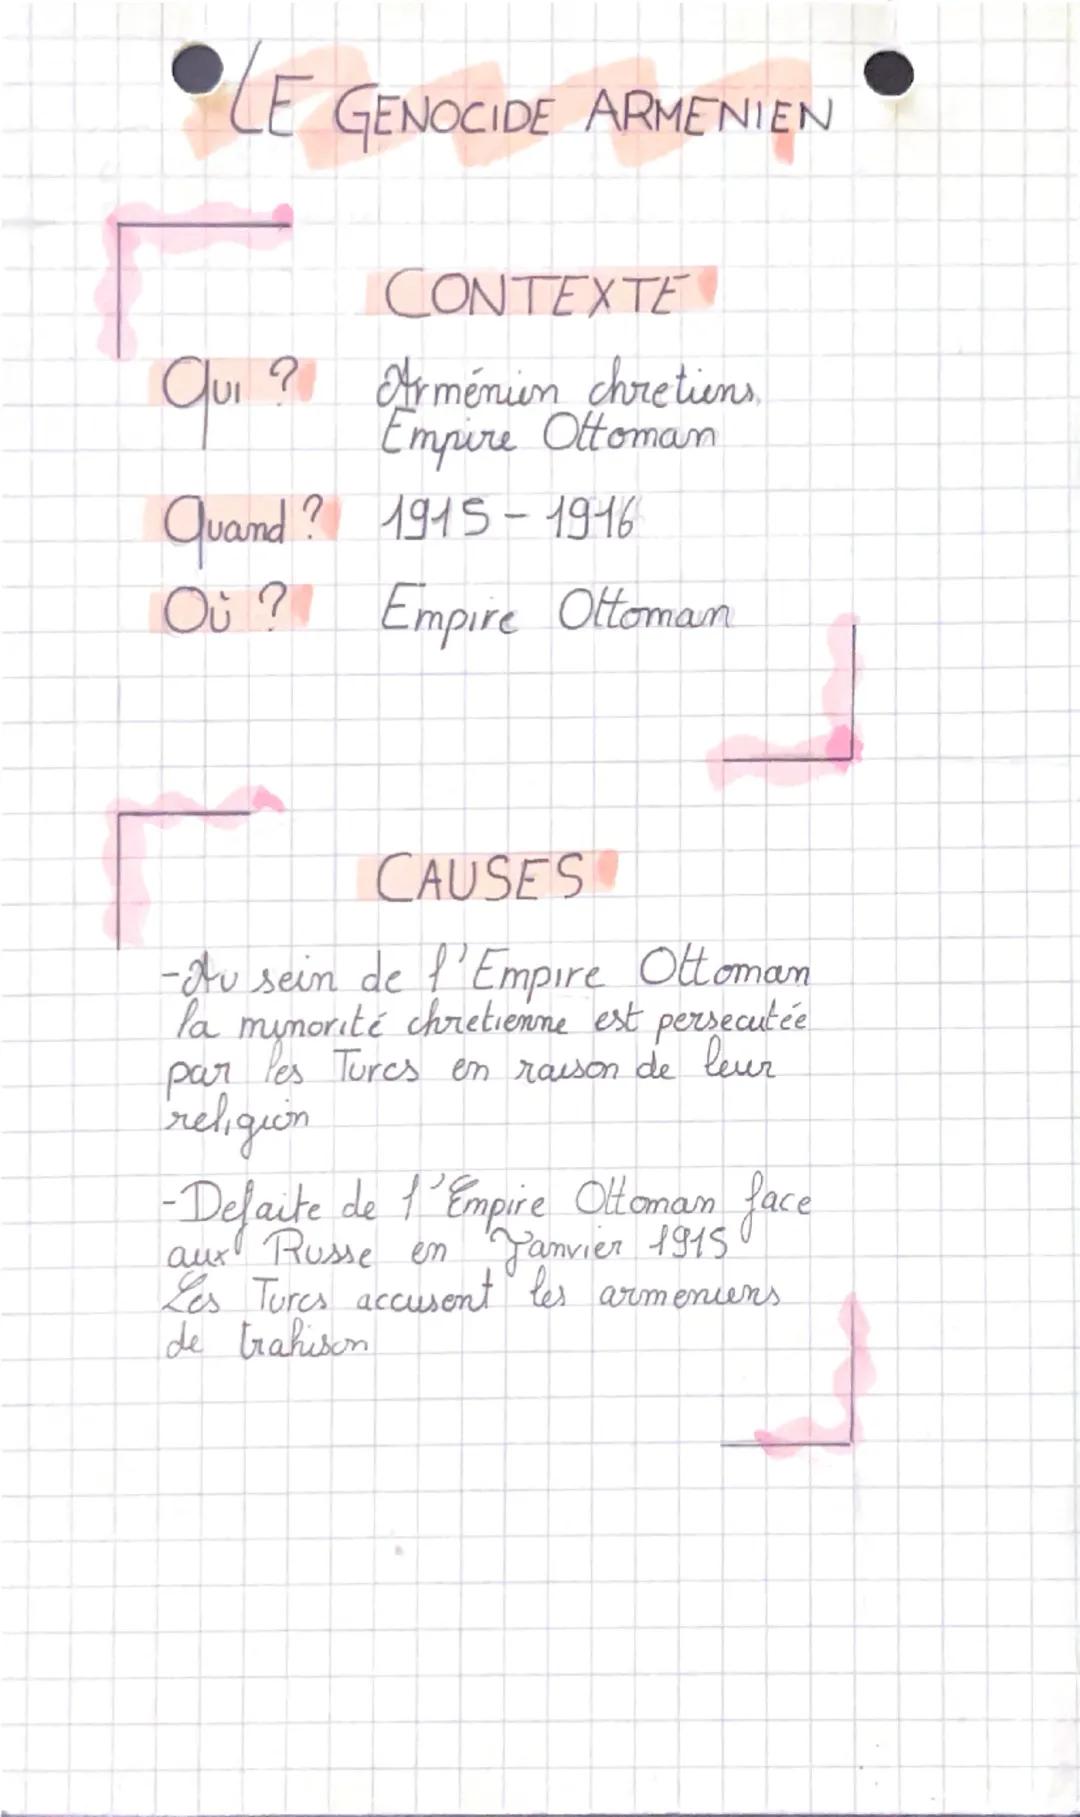 LE GENOCIDE ARMENIEN
CONTEXTE
Qui ? Arménien chretiens,
Empire Ottoman
Quand ? 1915 - 1916
Où ? Empire Ottoman
CAUSES
-Au sein de l'Empire Ottoman
la mynorité chretienne est persecutée
par les Turcs en raison de leur
religion
-Defaite de l'Empire Ottoman face
aux Russe en Janvier 1915
Les Turcs accusent les armeniens
de trahison